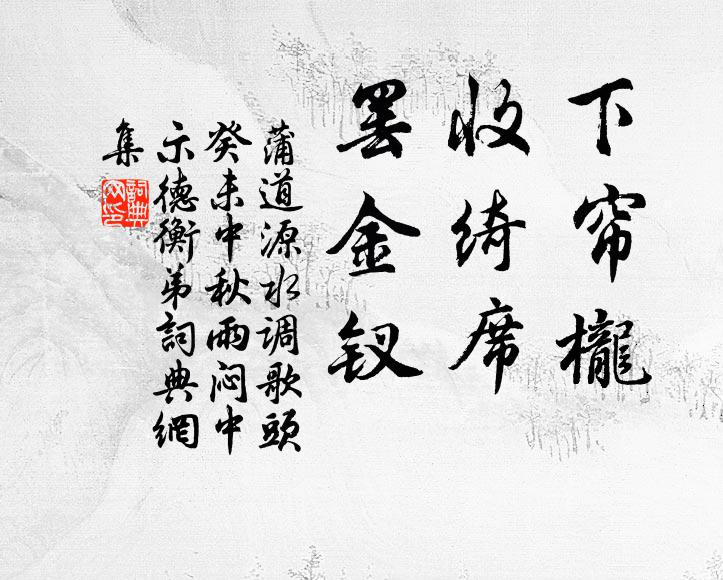 下帘櫳
收绮席
罢金钗
蒲道源水调歌頭
癸未中秋雨闷中
示德衡弟詞典網
集
詞典
网印